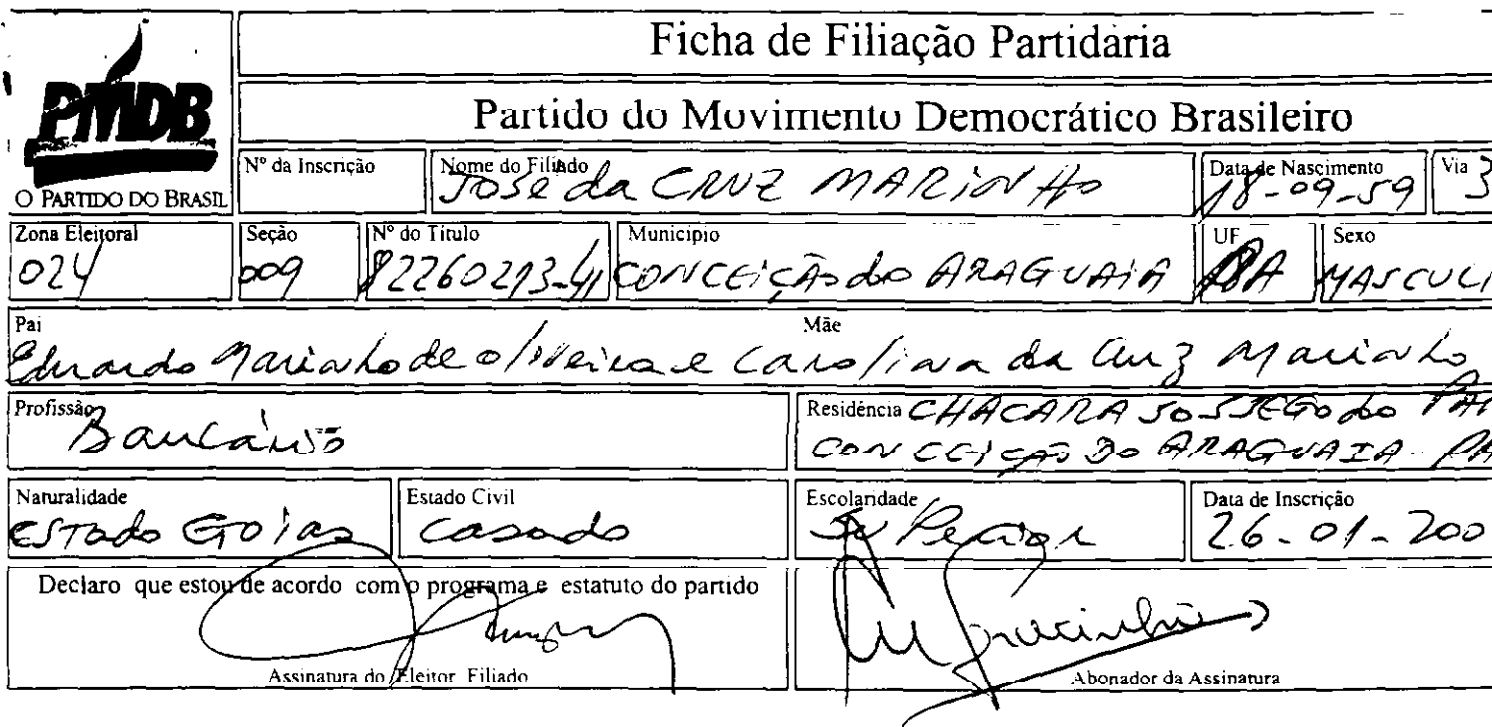 Ficha de Filiação Partidária
PMDB
O PARTIDO DO BRASIL
Partido do Movimento Democrático Brasileiro
Nº da Inscrição
Nome do Filiado
JOSÉ da CRUZ MARINHO
Data de Nascimento
18-09-59
Via 3
Zona Eleitoral
024
Seção
009
Nº do Título
12260213-41
Município
CONCEIÇÃO do ARAGUAIA
UF
PA
Sexo
MASCULI
Pai
Mãe
Eduardo Marinho de oliveira e Carolina da Cruz Marinho
Profissão
Bancário
Residência CHACARA SOSSEGO do PAI
CONCEIÇÃO DO ARAGUAIA - PA
Naturalidade
ESTado GOIAS
Estado Civil
Casado
Escolaridade
SuPerior
Data de Inscrição
26-01-200
Declaro que estou de acordo com o programa e estatuto do partido
Assinatura do Eleitor Filiado
Abonador da Assinatura